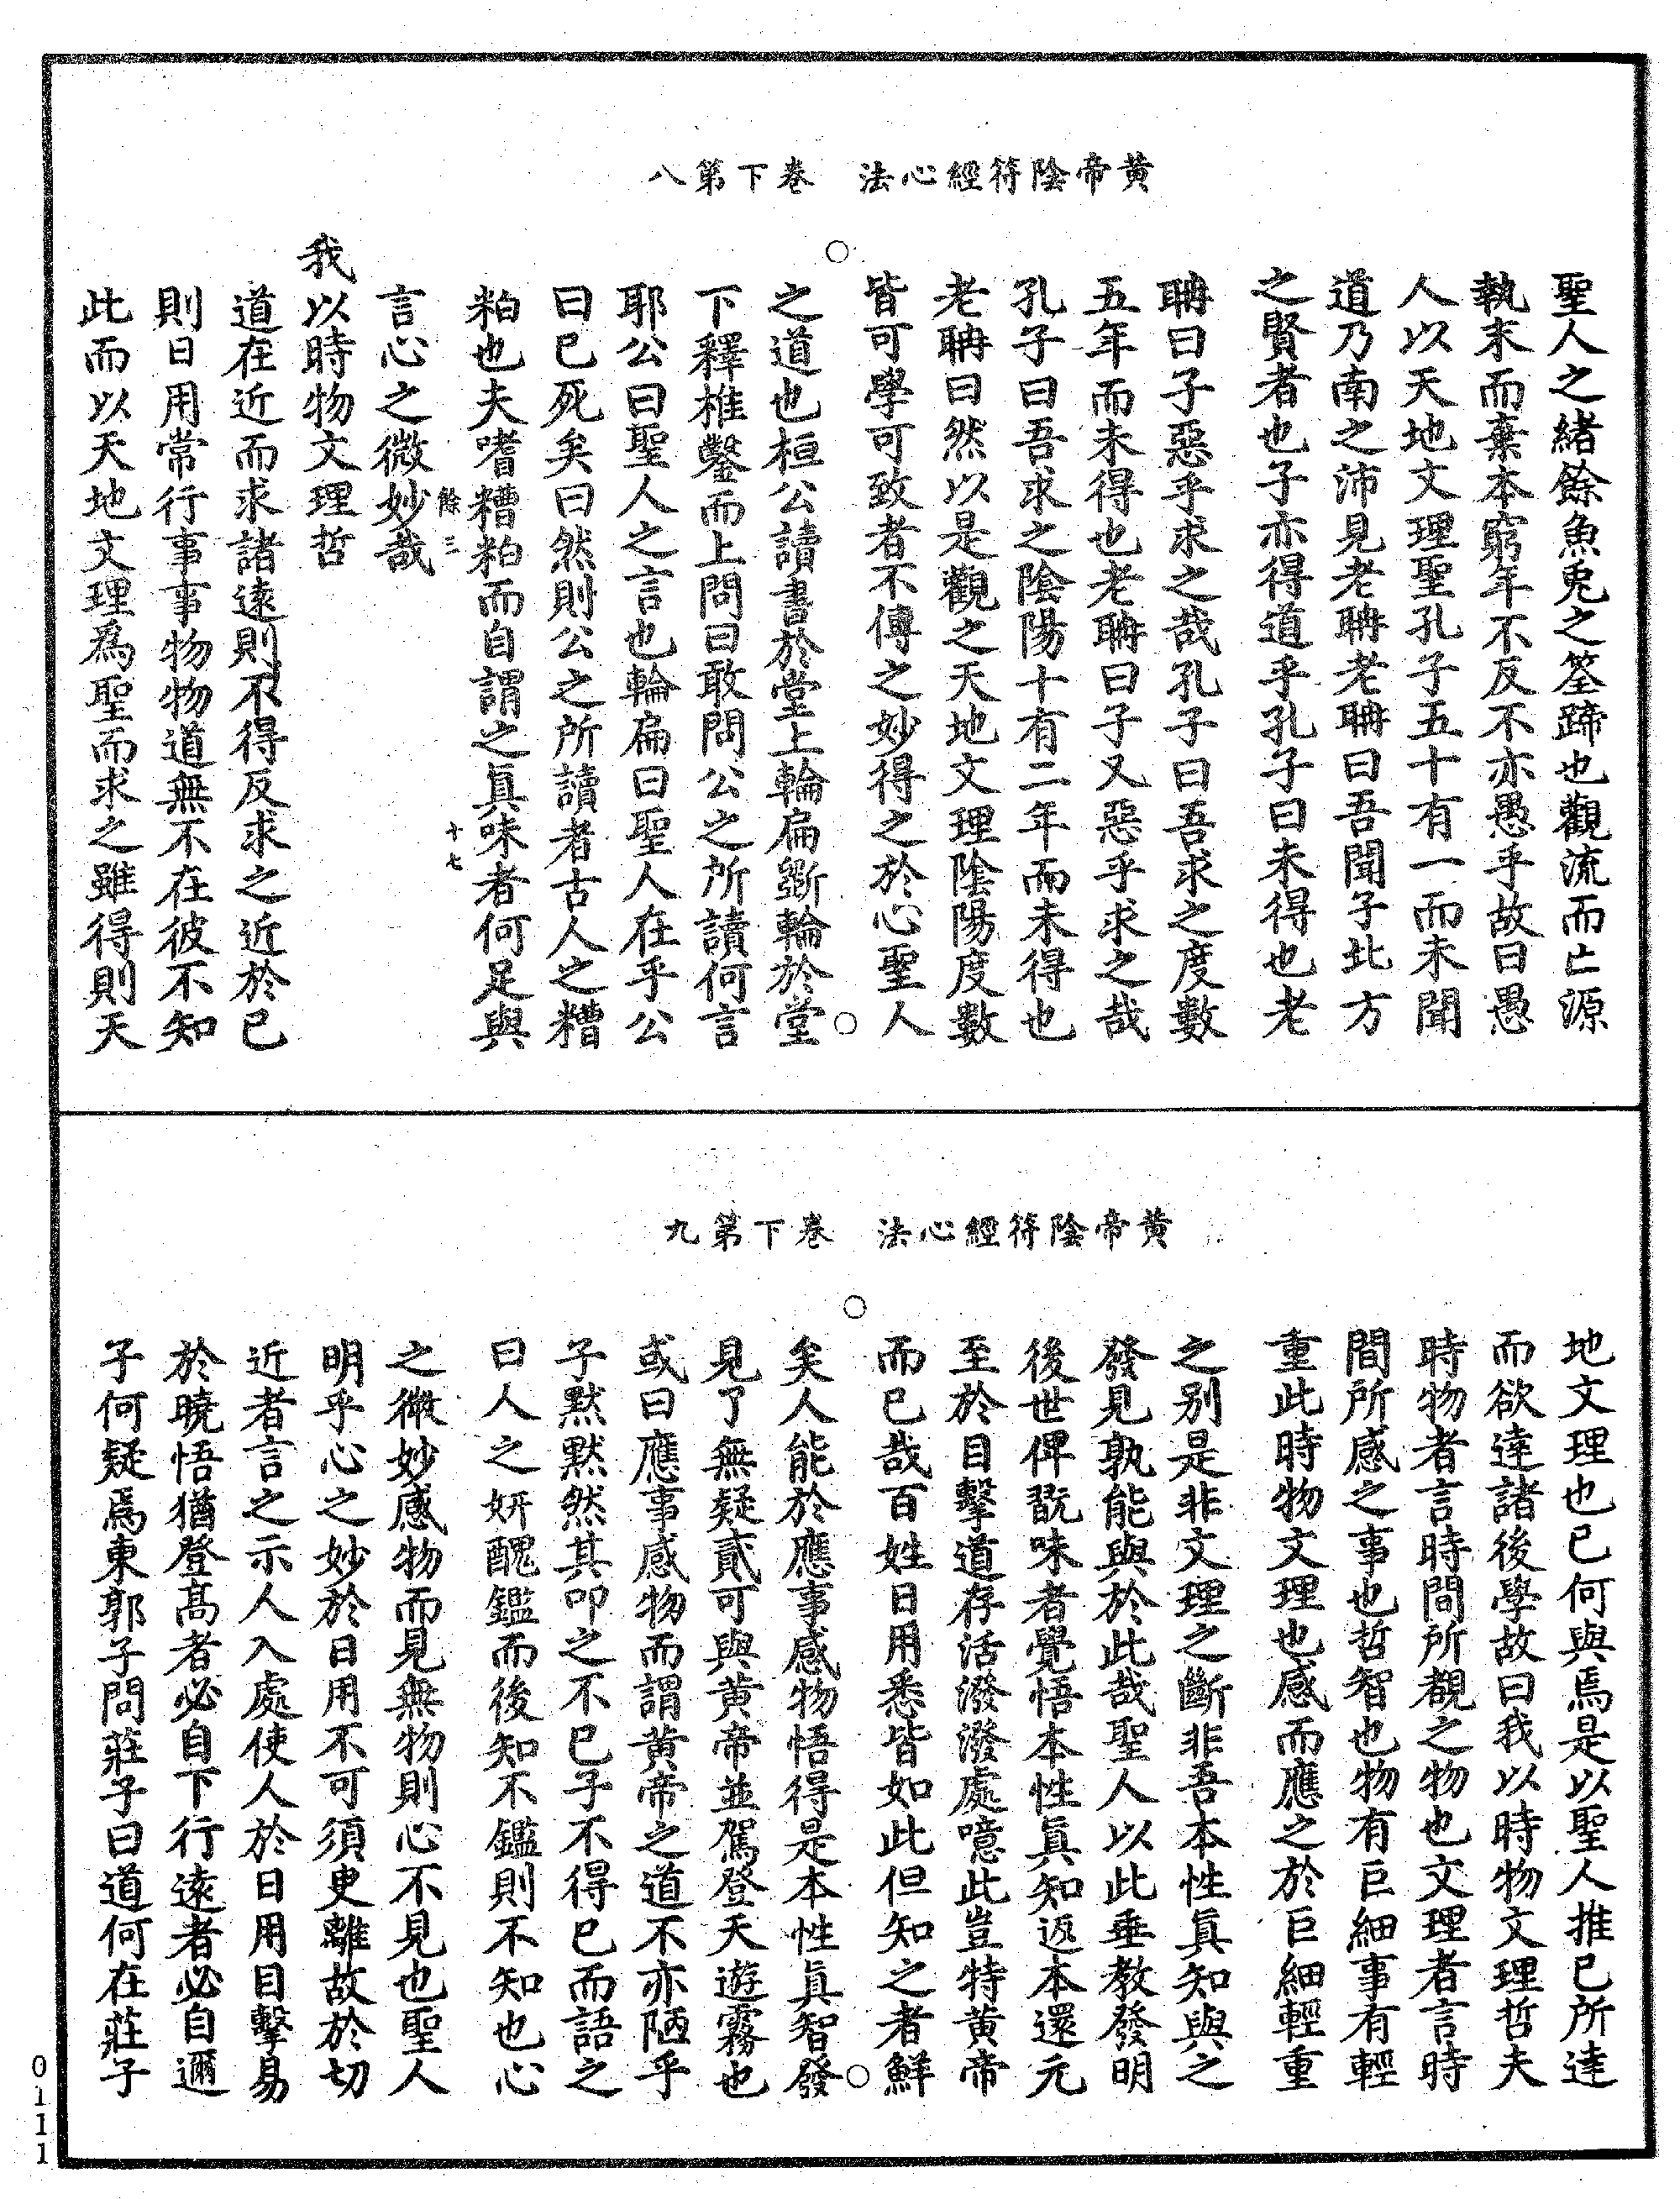 黃帝陰符經心法　卷下第八
聖人之緒餘魚兎之筌蹄也觀流而亡源
執末而棄本窮年不反不亦愚乎故曰愚
人以天地文理聖孔子五十有一而未聞
道乃南之沛見老聃老聃曰吾聞子北方
之賢者也子亦得道乎孔子曰未得也老
聃曰子惡乎求之哉孔子曰吾求之度數
五年而未得也老聃曰子又惡乎求之哉
孔子曰吾求之陰陽十有二年而未得也
老聃曰然以是觀之天地文理陰陽度數
皆可學可致者不傳之妙得之於心聖人
之道也桓公讀書於堂上輪扁斵輪於堂
下釋椎鑿而上問曰敢問公之所讀何言
耶公曰聖人之言也輪扁曰聖人在乎公
曰已死矣曰然則公之所讀者古人之糟
粕也夫嗜糟粕而自謂之真味者何足與
餘三　十七
言心之微妙哉
我以時物文理哲
道在近而求諸遠則不得反求之近於己
則日用常行事事物物道無不在彼不知
此而以天地文理為聖而求之雖得則天
黃帝陰符經心法　卷下第九
地文理也已何與焉是以聖人推己所達
而欲達諸後學故曰我以時物文理哲夫
時物者言時間所覩之物也文理者言時
間所感之事也哲智也物有巨細事有輕
重此時物文理也感而應之於巨細輕重
之別是非文理之斷非吾本性真知與之
發見孰能與於此哉聖人以此垂教發明
後世俾翫味者覺悟本性真知返本還元
至於目擊道存活潑潑處噫此豈特黃帝
而已哉百姓日用悉皆如此但知之者鮮
矣人能於應事感物悟得是本性真智發
見了無疑貳可與黃帝並駕登天遊霧也
或曰應事感物而謂黃帝之道不亦陋乎
子默默然其叩之不已子不得已而語之
曰人之妍醜鑑而後知不鑑則不知也心
之微妙感物而見無物則心不見也聖人
明乎心之妙於日用不可須臾離故於切
近者言之示人入處使人於日用目擊易
於曉悟猶登高者必自下行遠者必自邇
子何疑焉東郭子問莊子曰道何在莊子
0111